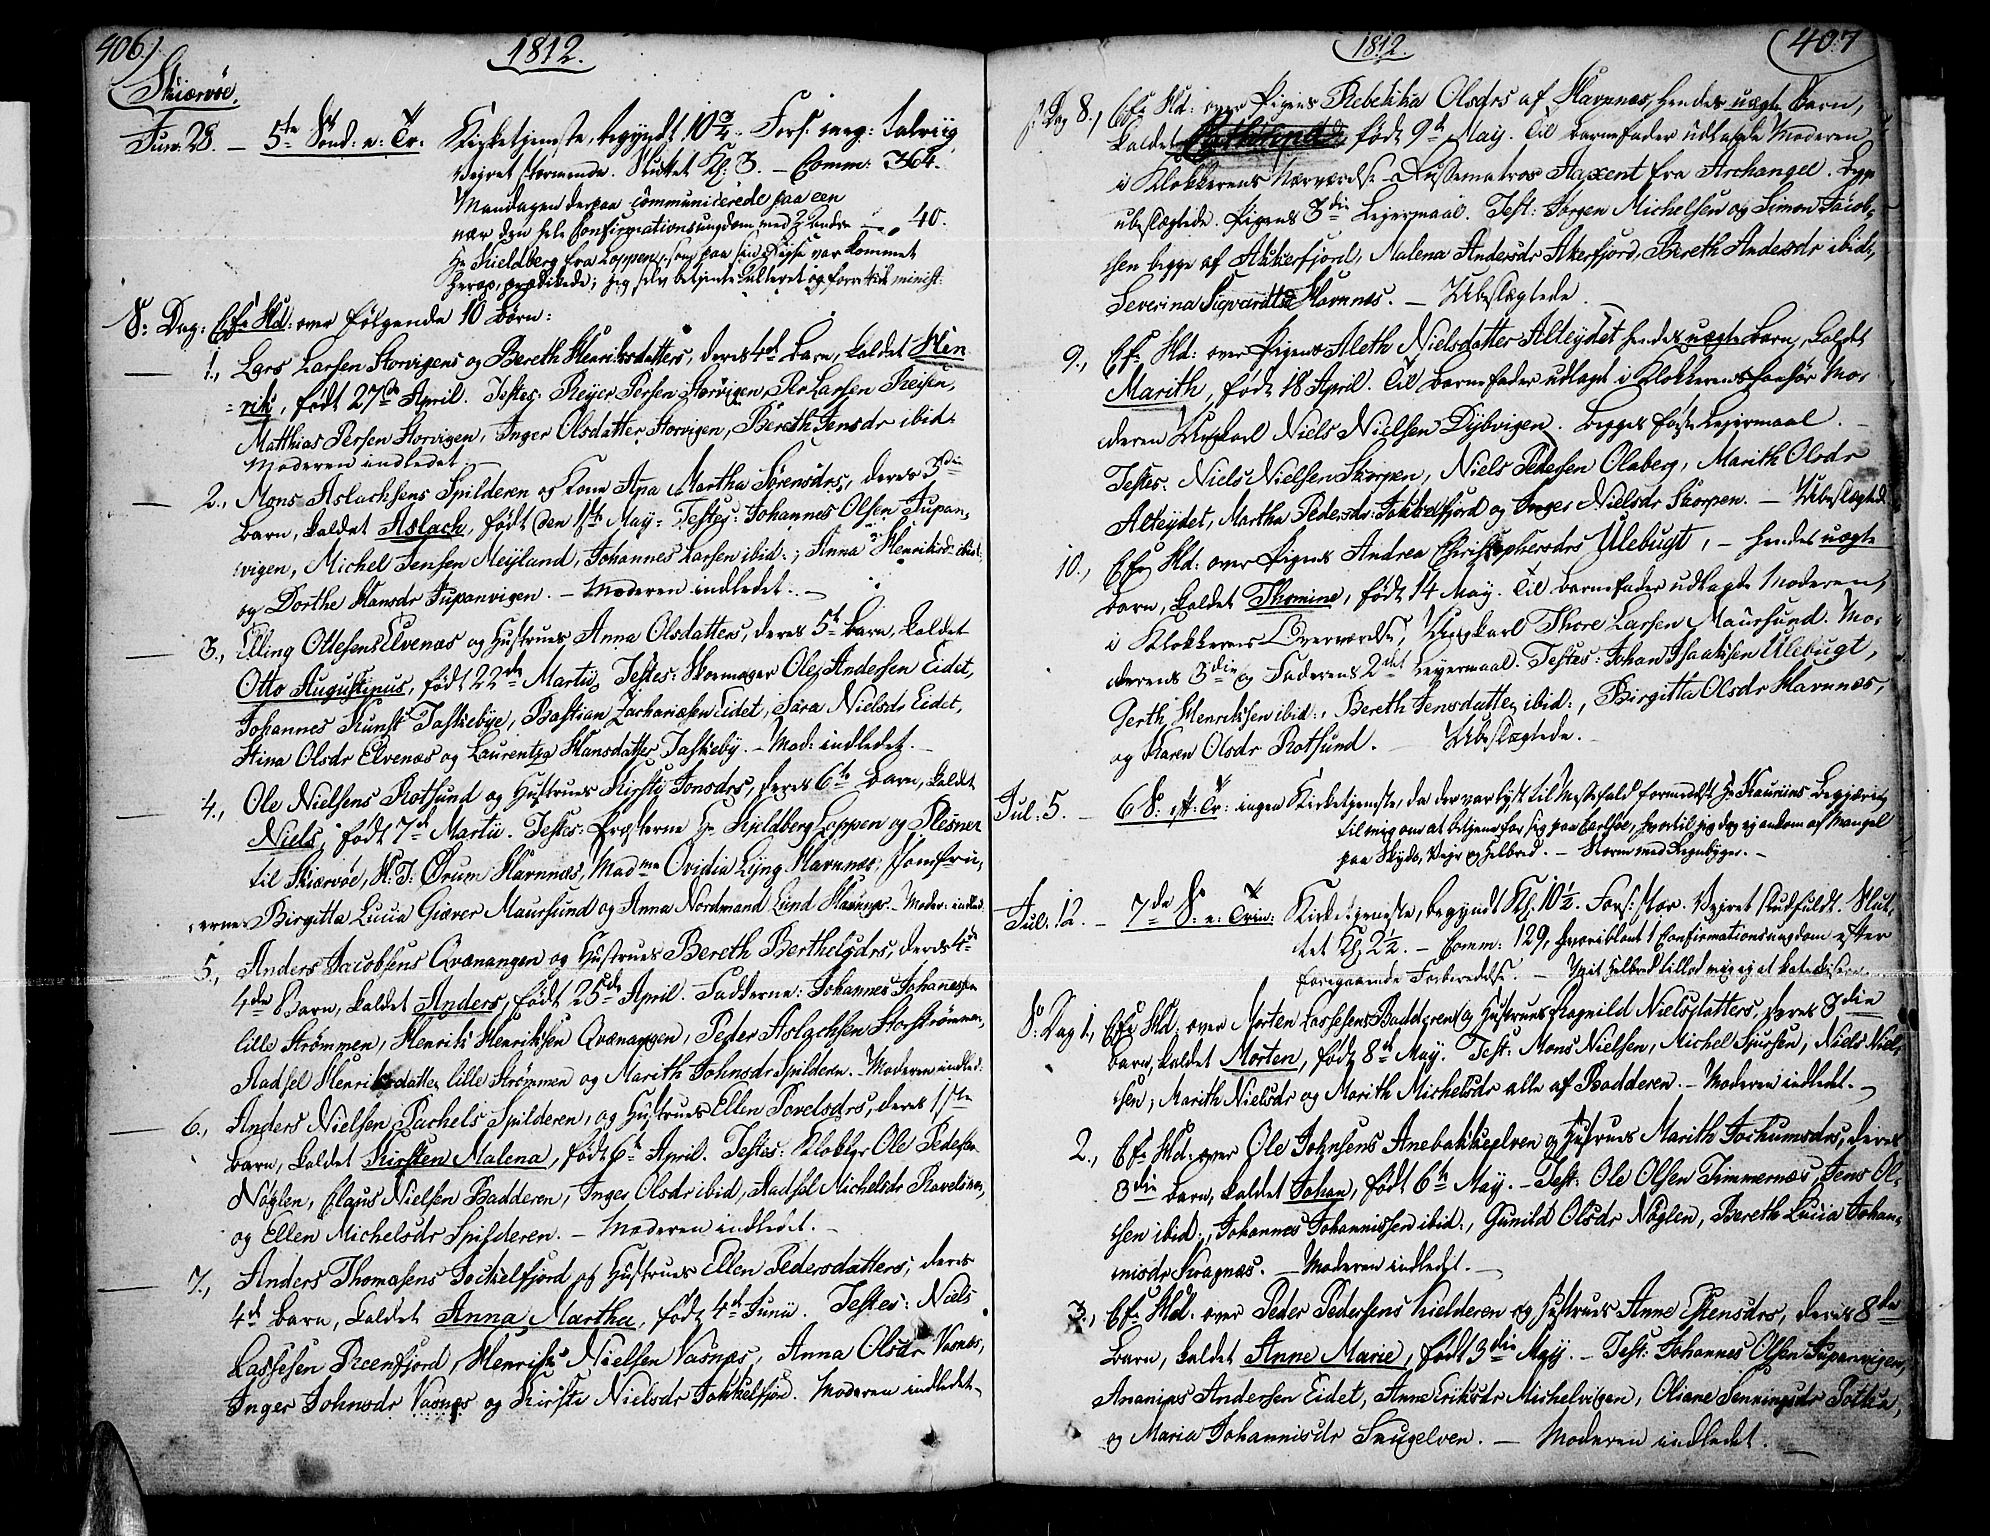 406)
1812.
Skiærvöe.
Jun: 28. — 5te Sönd: e: Tr. Kirketjeneste, begyndt 10 3/4. Fors: meg: talriig
Vejret stormende. Sluttet Kl: 3. — Comm: 364.
Mandagen derpaa communicerede paa een
nær den hele Confirmationsungdom med 2 Andre — 40.
Hr Kieldberg fra Loppen, som paa sin Rejse var kommet
herop, prædikede; jeg selv betjente Alteret og forrettede minist:
S: Dag: Efr Hd: over følgende 10 Børn:
1., Lars Larsen Storvigens og Bereth Henriksdatters, deres 4de Barn, kaldet Hen
= rik, født 27de April. Testes: Reyer Persen Storvigen, Per Larsen Reisen,
Matthias Persen Storvigen, Inger Olsdatter Storvigen, Bereth Jensdr ibid:
Moderen indledet.
2., Mons Aslachsens Spilderen og Kone Ana Martha Sørensdrs, deres 3die
Barn, kaldet Aslach, født den 1ste May. Testes: Johannes Olsen Jupan,
vigen, Michel Jensen Meiland, Johannes Larsen ibid:, Anna Henriksd: ibid:
og Dorthe Hansdr Jupanvigen. — Moderen indledet. —
3., Elling Ottesens Elvenæs og Hustrues Anna Olsdatters, deres 5te Barn, kaldet
Otto Augustinus, født 22de Martii. Testes: Skomager Ole Andersen Eidet,
Johannes Kunst Taskebye, Bastian Zachariæsen Eidet, Sara Nielsdr Eidet,
Stina Olsdr Elvenæs og Laurentza Hansdatter Taskeby. — Mod: indledet. —
4., Ole Nielsens Rotsund og Hustrues Kirsti Jonsdrs, deres 6te Barn, kaldet
Niels, født 7de Martii. Testes: Præsterne Hr Kjeldberg Loppen og Plesner
til Skiærvöe, H. J: Ørum Havnnæs, Madme Ovidia Lyng Havnnæs, Jomfru,
erne Birgitta Lucia Giæver Maursund og Anna Nordmand Lund Havnnæs. — Moder: indled:
5., Anders Jacobsens Qvænangen og Hustrues Bereth Berthelsdrs, deres 4de
4de Barn, kaldet Anders, født 25de April. Fadderne: Johannes Johanesen
lille Strømmen, Henrik Henriksen Qvænangen, Peder Aslachsen Storstrømmen,
Aadsel Henriksdatter lille Strømmen og Marith Johnsdr Spilderen. — Moderen indled:
6., Anders Nielsen Pachels Spilderen, og Hustrues Ellen Povelsdrs, deres 1ste
Barn, kaldet Kirsten Malena, født 6te April. Testes: Klokker Ole Pedersen
Nøglen, Claus Nielsen Badderen, Inger Olsdr ibid, Aadsel Michelsdr Ravelsen,
og Ellen Michelsdr Spilderen. — Moderen indledet. —
7., Anders Thomasens Jockelfjord og Hustrues Ellen Pedersdatters, deres
4de Barn, kaldet Anna Martha, født 4de Junii. Testes: Niels
Lassesen Reenfjord, Henrik Nielsen Vasnæs, Anna Olsdr Vasnæs,
Inger Johnsdr Vasnæs og Kirsti Nielsdr Jokkelfjor. Moderen indledet.
1812.
407
S: Dag 8., Efr Hd: over Pigens Rebekka Olsdrs af Havnnæs, hendes uægte Barn,
kaldet, født 9de May. Til Barnefader udlagde Moderen
i Klokkerens Nærværelse Russematros Axent fra Archangel. Begge
ubeslægtede. Pigens 3die Lejermaal. Test: Jørgen Michelsen og Simon Jacob,
sen begge af Akkerfjord, Malena Andersdr Akerfjord, Bereth Andersdr ibid,
Severina Sigvardtsd Havnnæs. — Ubeslægtede.
9., Efr Hd: over Pigens Aleth Nielsdatter Alteydet hendes uægte Barn, kaldet
Marith, født 18 April. Til Barnefader udlagt i Klokkerens Paahør Mo,
deren Ungkarl Niels Nielsen Dybvigen. Begges første Lejermaal. —
Testes: Niels Nielsen Skorpen, Niels Pedersen Olaberg, Marith Olsdr
Alteydet, Martha Pedersdr Jokkelfjord og Inger Nielsdr Skorpen. — Ubeslægted
10., Efr Hd: over Pigens Andrea Christophersdrs Ulebugt, — hendes uægte
Barn, kaldet Thomine, født 14 May. Til Barnefader udlagde Moderen,
i Klokkerens Overværelse, Ungkarl Thore Larsen Maursund. Mo,
derens 3die og Faderens 2det Lejermaal. Testes: Johan Isaaksen Ulebugt,
Gerth Henriksen ibid:, Bereth Jensdatter ibid:, Birgitta Olsdr Havnnæs,
og Karen Olsdr Rotsund. — Ubeslægtede. —
Jul: 5. — 6 S: eft: Tr: ingen Kirketjeneste, da der var lyst til Messefald formedelst Hr Hauruns Begjæring
til mig om at betjene for sig paa Carlsøe, hvortil jeg dog ej ankom af Mangel
paa Skyds, Vejr og Helbred. — Storm med Regnbyger. —
Jul: 12. — 7de S: e: Trin: Kirketjeneste, begyndt Kl: 10 1/2. Fors: stor. Vejret skudfuldt. Slut,
tet Kl: 2 1/2. — Comm: 129, hvoriblant 1 Confirmationsungdom efter
foregaaende Forberedelse. — Mit Helbred tillod mig ej at katekisere.
S: Dag 1., Efr Hd: over Morten Lassesens Badderen og Hustrues Ragnild Nielsdatters, deres 3die
Barn, kaldet Morten, født 8de May. Test: Mons Nielsen, Michel Sjursen, Niels Niel,
sen, Marith Nielsdr og Marith Michelsdr alle af Badderen. — Moderen indledet. —
2., Efr Hd: over Ole Johnsens Anebakkeelven og Hustrues Marith Jochumsdrs, deres
3die Barn, kaldet Johan, født 6te May. — Test: Ole Olsen Timmernæs, Jens Ol,
sen ibid:, Johannes Johannissen ibid:, Gunild Olsdr Nøglen, Bereth Lucia Johan,
nisdr Kragnæs. — Moderen indledet. —
3., Efr Hd: over Peder Pedersens Kielderen og Hustrues Anne Espensdrs, deres 8de
Barn, kaldet Anne Marie, født 3die May. — Test: Johannes Olsen Jupanvigen,
Ananias Andersen Eidet, Anne Eriksdr Michelvigen, Oliane Henningsdr Pollen,
og Maria Johannisdr Snugelven. — Moderen indledet. —